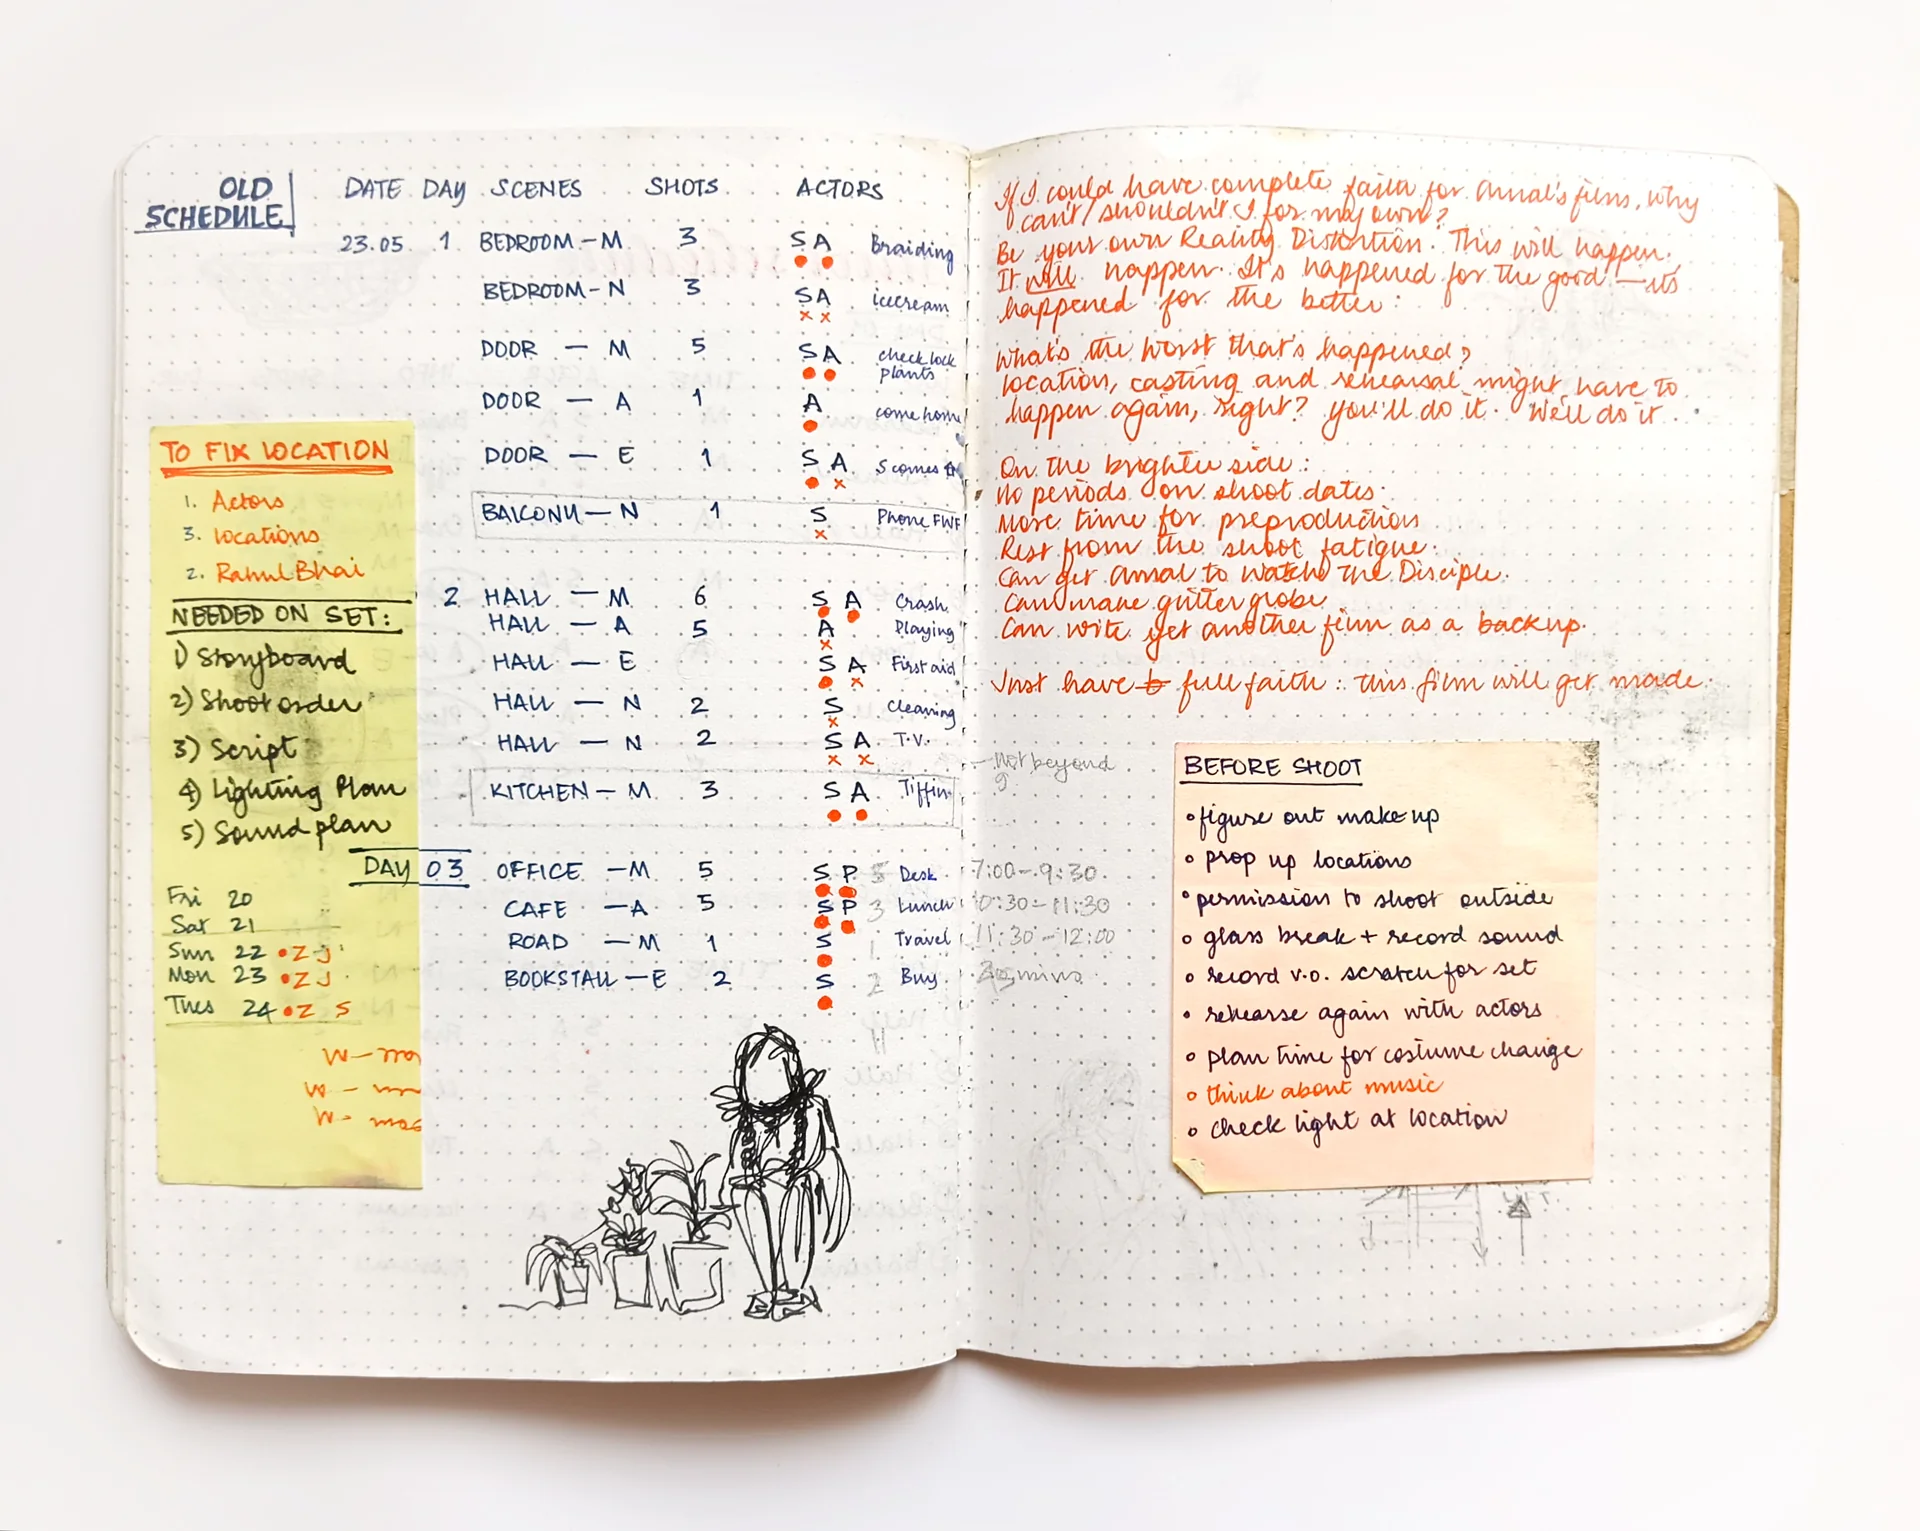 OLD SCHEDULE
DATE DAY SCENES SHOTS ACTORS
23.05 1 BEDROOM - M 3 S A Braiding
BEDROOM - N 3 S A icecream
x x
DOOR - M 5 S A check lock
plants
DOOR - A 1 A come home
DOOR - E 1 S A S comes
x
BALCONY - N 1 S Phone FWF
x
2 HALL - M 6 S A Crash
HALL - A 5 A Playing
x
HALL - E S A First aid
x
HALL - N 2 S Cleaning
x
HALL - N 2 S A T.V.
x x
KITCHEN - M 3 S A Tiffin
DAY 03 OFFICE - M 5 S P 5 Desk 7:00 - 9:30
CAFE - A 5 S P 3 Lunch 10:30 - 11:30
ROAD - M 1 S 1 Travel 11:30 - 12:00
BOOKSTALL - E 2 S 2 Buy mins
11
TO FIX LOCATION
1. Actors
3. locations
2. Rahul Bhai
NEEDED ON SET:
1) Storyboard
2) Shoot order
3) Script
4) Lighting Plan
5) Sound plan
Fri 20
Sat 21
Sun 22 • Z J
Mon 23 • Z J
Tues 24 • Z S
If I could have complete faith for Amal's film, why
can't/shouldn't I for my own?
Be your own Reality Distortion. This will happen.
It will happen. It's happened for the good — its
happened for the better:
What's the worst that's happened?
location, casting and rehearsal might have to
happen again, right? You'll do it. We'll do it
On the brighter side:
No periods on shoot dates.
More time for preproduction
Rest from the shoot fatigue.
Can get Amal to watch The Disciple.
Can make gutter globe
Can write yet another film as a backup.
Just have full faith: this film will get made.
- Not beyond
9
BEFORE SHOOT
• figure out make up
• prop up locations
• permission to shoot outside
• glass break + record sound
• record v.o. scratch for set
• rehearse again with actors
• plan time for costume change
• think about music
• check light at location